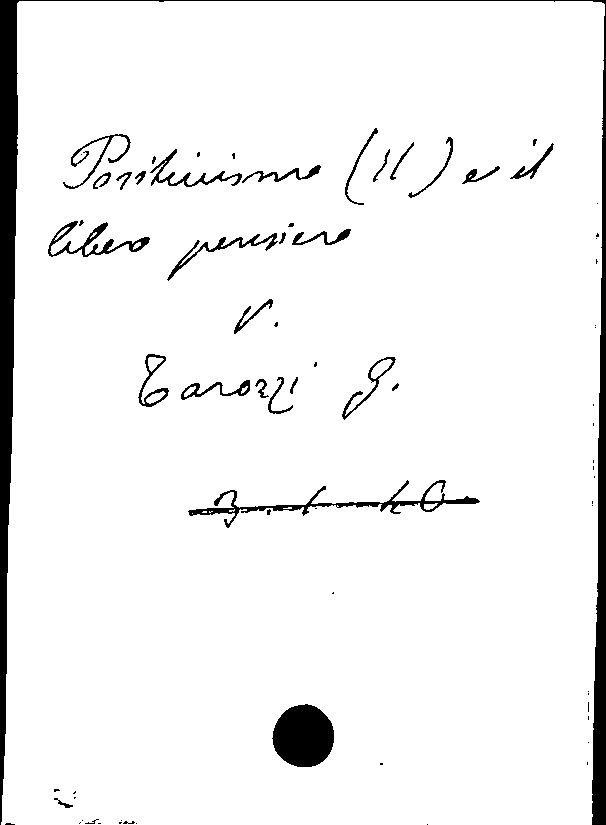 Positivismo (Il) e il
libero pensiero
V.
Tarozzi G.